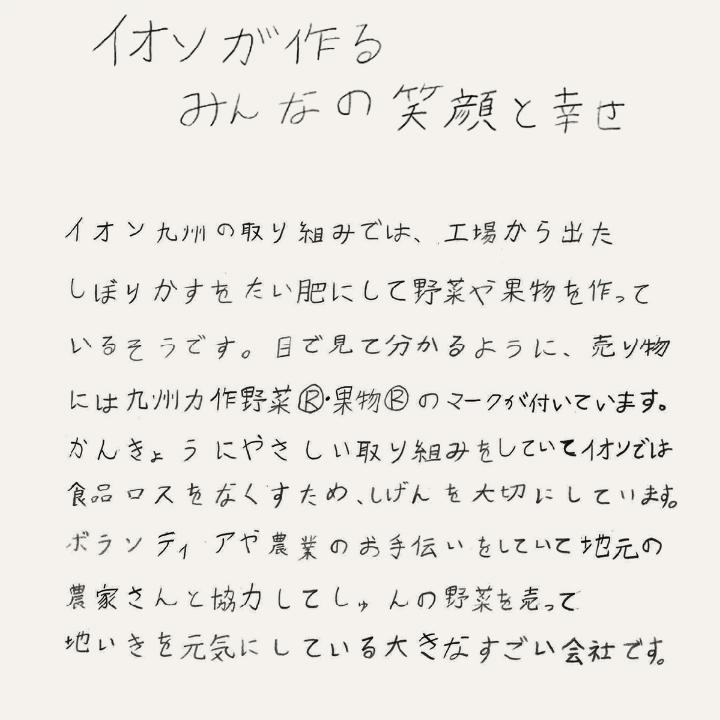 イオンが作る
みんなの笑顔と幸せ
イオン九州の取り組みでは、工場から出た
しぼりかすをたい肥にして野菜や果物を作って
いるそうです。目で見て分かるように、売り物
には九州力作野菜®・果物®のマークが付いています。
かんきょうにやさしい取り組みをしていてイオンでは
食品ロスをなくすため、しげんを大切にしています。
ボランティアや農業のお手伝いをしていて地元の
農家さんと協力してしゅんの野菜を売って
地いきを元気にしている大きなすごい会社です。